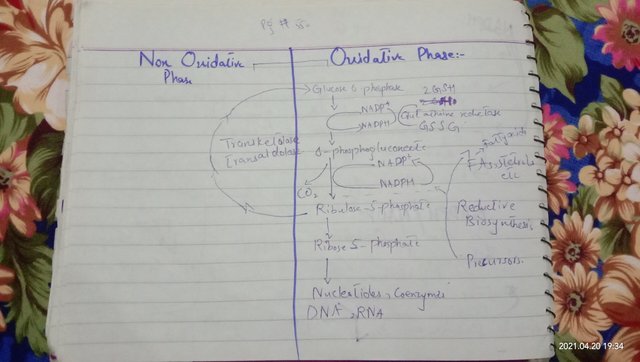 Pg # 55.
Non Oxidative
Phase
Oxidative Phase:-
Glucose 6 phosphate
NADP+
NADPH
2GSH
Glutathione reductase
GSSG
Transketolase
Transaldolase
6-phosphogluconate
NADP+
NADPH
CO2
Fatty acids
FA, sterols
etc
Ribulose-5-phosphate
Reductive
Biosynthesis.
Ribose 5-phosphate
Precursors.
Nucleotides, Coenzymes
DNA, RNA
2021.04.20 19:34